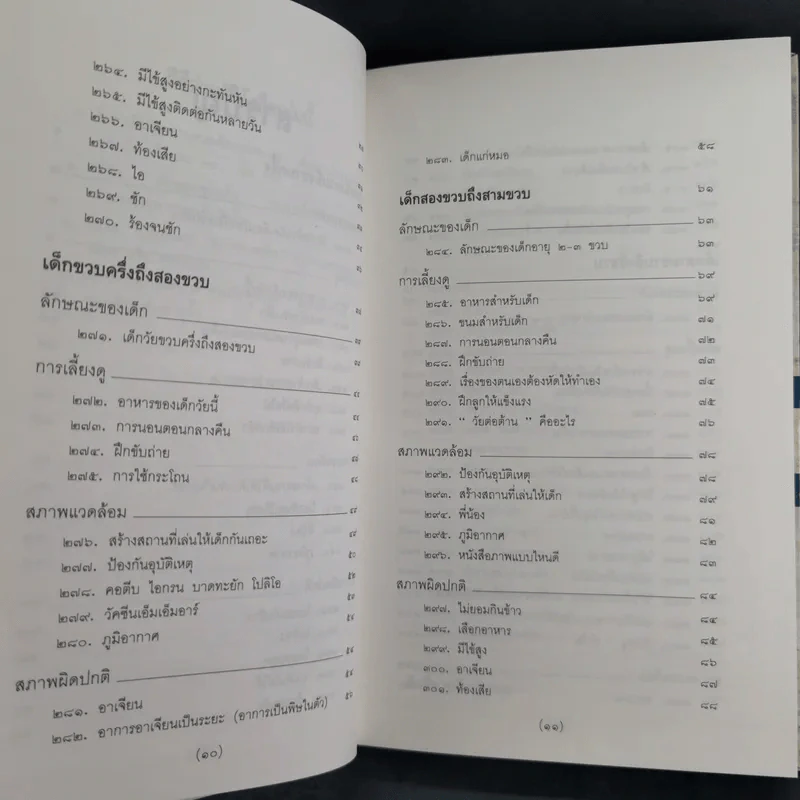 ๒๖๔. มีไข้สูงอย่างกะทันหัน
๒๖๕. มีไข้สูงติดต่อกันหลายวัน
๒๖๖. อาเจียน
๒๖๗. ท้องเสีย
๒๖๘. ไอ
๒๖๙. ชัก
๒๗๐. ร้องจนชัก
เด็กขวบครึ่งถึงสองขวบ
ลักษณะของเด็ก
๒๗๑. เด็กวัยขวบครึ่งถึงสองขวบ
การเลี้ยงดู
๒๗๒. อาหารของเด็กวัยนี้
๒๗๓. การนอนตอนกลางคืน
๒๗๔. ฝึกขับถ่าย
๒๗๕. การใช้กระโถน
สภาพแวดล้อม
๒๗๖. สร้างสถานที่เล่นให้เด็กกันเถอะ
๒๗๗. ป้องกันอุบัติเหตุ
๒๗๘. คอตีบ ไอกรน บาดทะยัก โปลิโอ
๒๗๙. วัคซีนเอ็มเอ็มอาร์
๒๘๐. ภูมิอากาศ
สภาพผิดปกติ
๒๘๑. อาเจียน
๒๘๒. อาการอาเจียนเป็นระยะ (อาการเป็นพิษในตัว)
(๑๐)
๒๘๓. เด็กแก่หมอ ๕๘
เด็กสองขวบถึงสามขวบ ๖๑
ลักษณะของเด็ก ๖๓
๒๘๔. ลักษณะของเด็กอายุ ๒-๓ ขวบ ๖๓
การเลี้ยงดู ๖๙
๒๘๕. อาหารสำหรับเด็ก ๖๙
๒๘๖. ขนมสำหรับเด็ก ๗๑
๒๘๗. การนอนตอนกลางคืน ๗๒
๒๘๘. ฝึกขับถ่าย ๗๓
๒๘๙. เรื่องของตนเองต้องหัดให้ทำเอง ๗๔
๒๙๐. ฝึกลูกให้แข็งแรง ๗๕
๒๙๑. " วัยต่อต้าน " คืออะไร ๗๖
สภาพแวดล้อม ๗๘
๒๙๒. ป้องกันอุบัติเหตุ ๗๘
๒๙๓. สร้างสถานที่เล่นให้เด็ก ๗๙
๒๙๔. พี่น้อง ๘๑
๒๙๕. ภูมิอากาศ ๘๒
๒๙๖. หนังสือภาพแบบไหนดี ๘๓
สภาพผิดปกติ ๘๔
๒๙๗. ไม่ยอมกินข้าว ๘๔
๒๙๘. เลือกอาหาร ๘๕
๒๙๙. มีไข้สูง ๘๖
๓๐๐. อาเจียน ๘๗
๓๐๑. ท้องเสีย ๘๘
(๑๑)